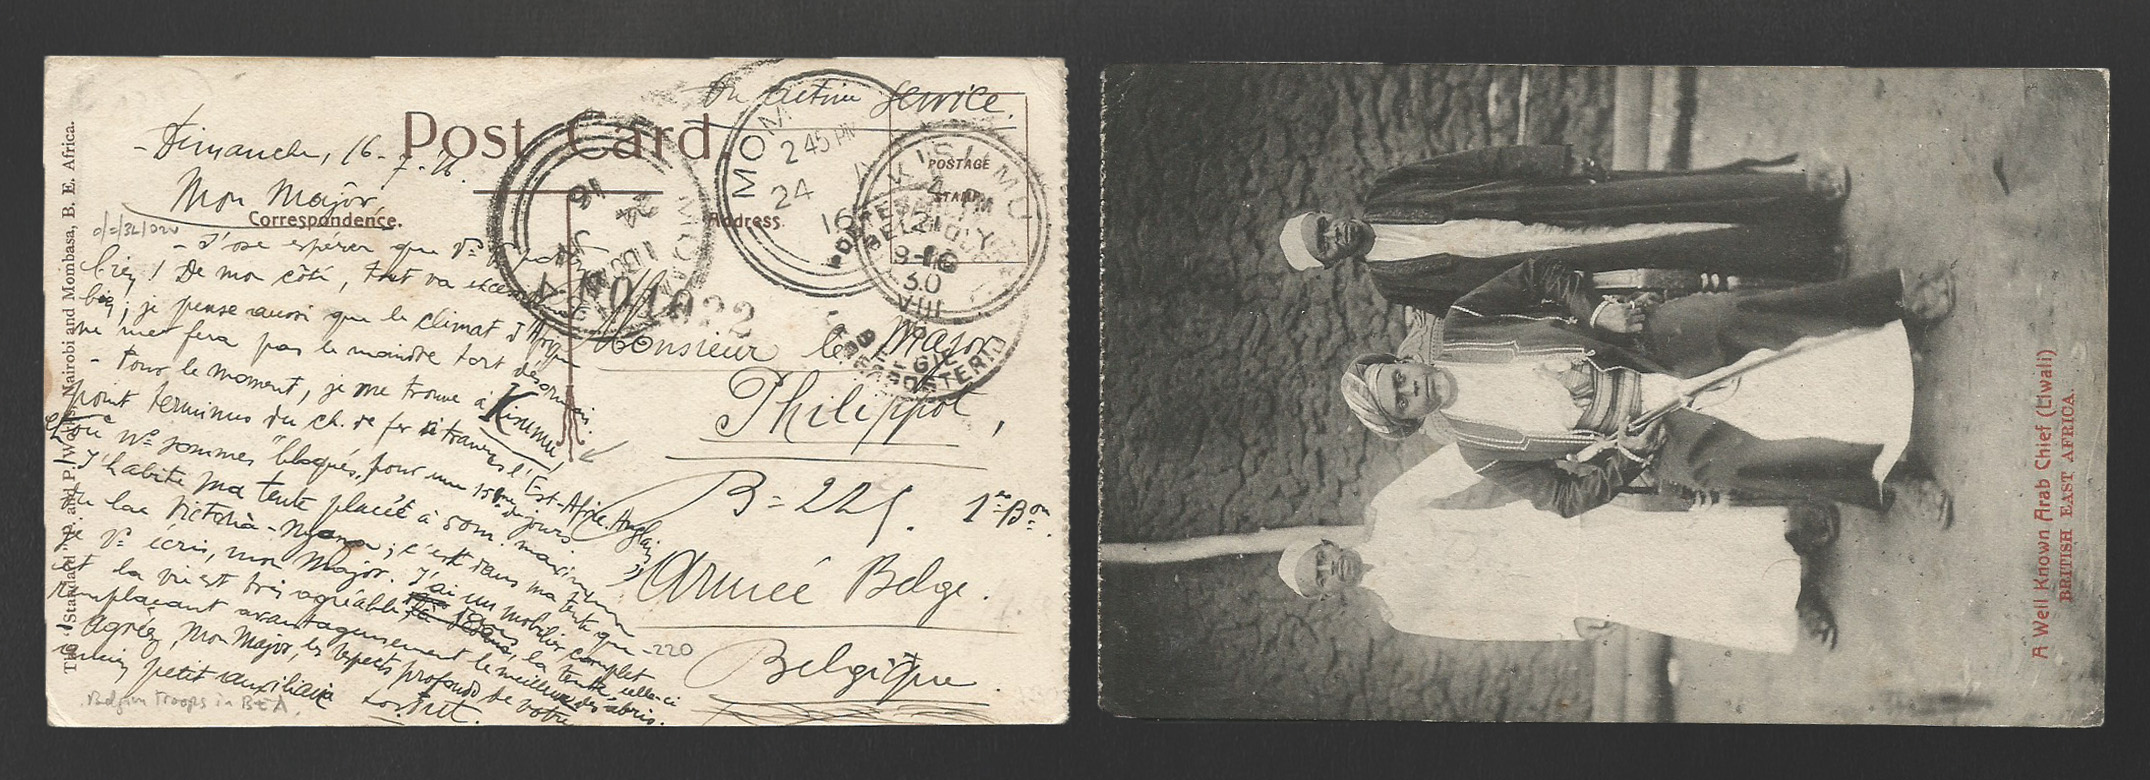 On active Service.
Post Card
- Dimanche, 16-7-16.
Mon Major,
Correspondence.
Address
POSTAGE
STAMP
- J'ose espérer que Vs
bien! De mon côté, tout va
; je pense aussi que le climat d'Afrique
ne me fera pas le moindre tort désormais.
- Pour le moment, je me trouve à Kisumu,
point terminus du ch. de fer
l'Est-Afric. Anglais
où ns sommes "bloqués" pour une jours
J'habite ma tente placée à 50m. maximum
du lac Victoria-Nyanza; c'est dans ma tente que
je Vs écris, mon Major. J'ai un mobilier complet
et la vie est très agréable, la tente
remplaçant avantageusement le meilleur des abris.
Agréez, mon Major, les respects profonds de votre
ancien petit auxiliaire
Monsieur le Major
Philippot,
B = 225. 1er Bon.
Armée Belge.
Belgique.
220
Belgian Troops in BEA.
The "Standard" P. and P. Works, Nairobi and Mombasa, B. E. Africa.
MOM
2 45 PM
24
16
KISUMU
4 PM
21 JY
16
9-10
30
VIII
BELGIE
A Well Known Arab Chief (Liwali)
BRITISH EAST AFRICA.